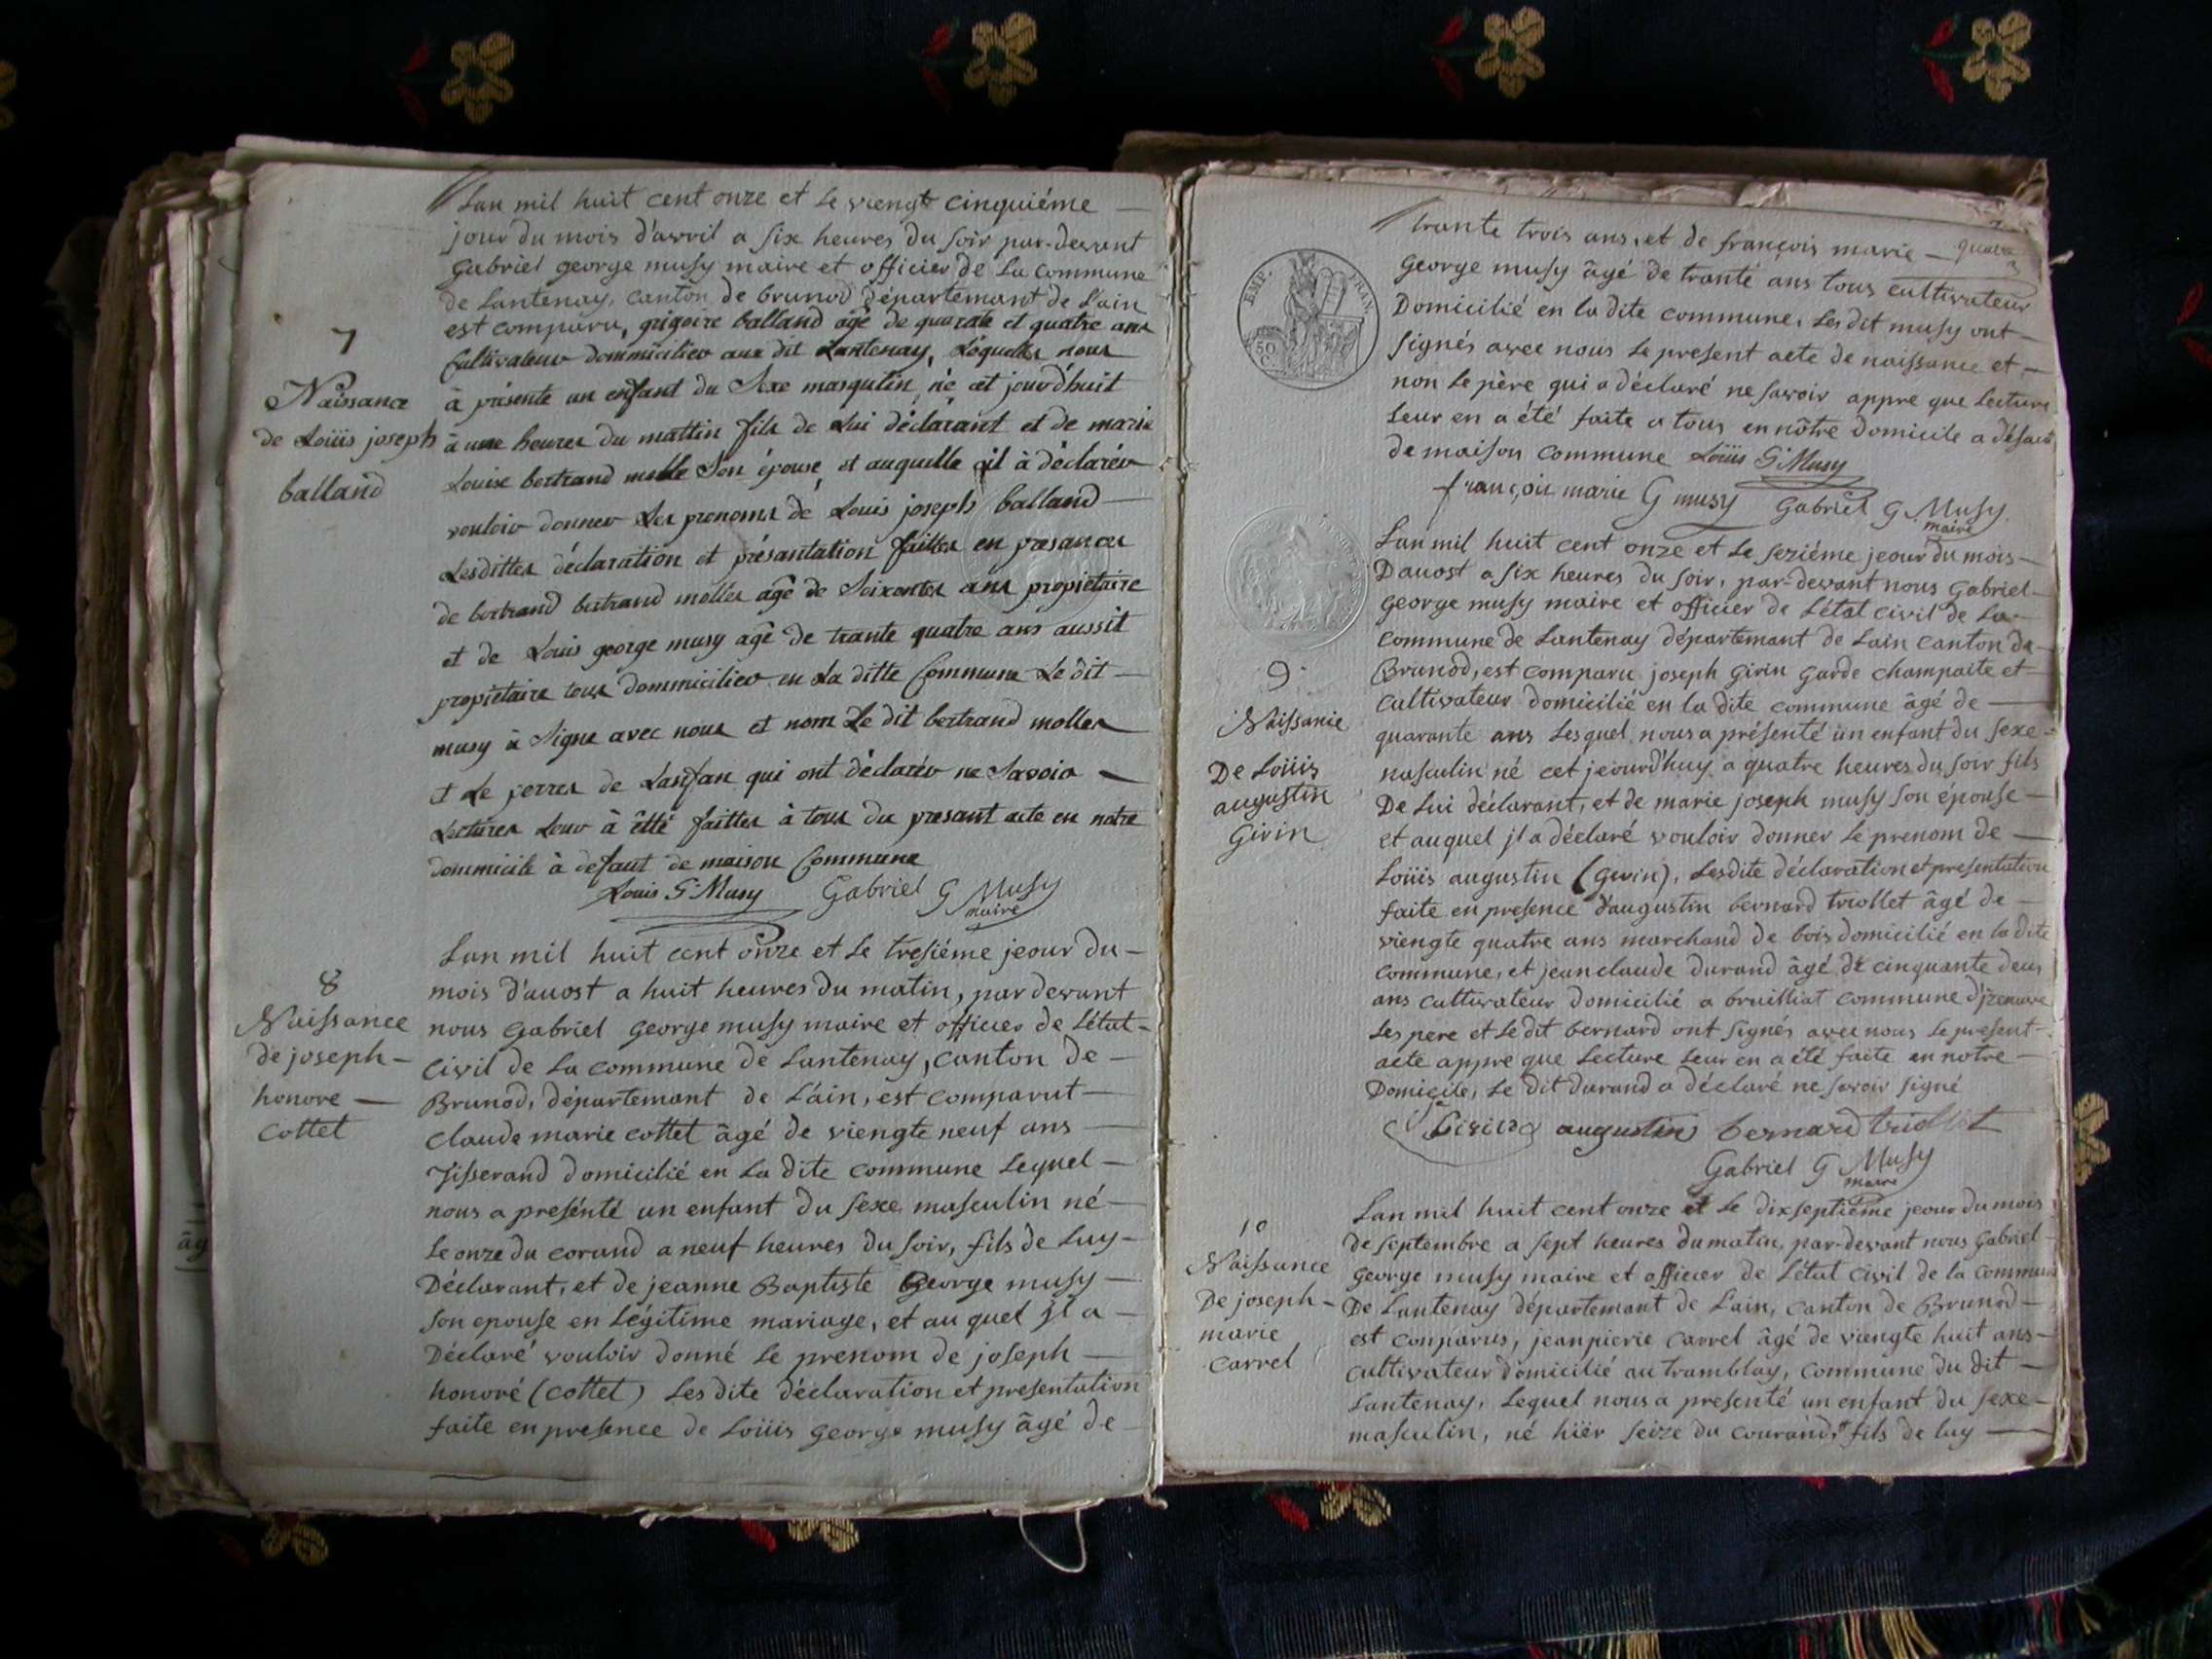 Lan mil huit cent onze et le viengt cinquiéme
jour du mois d'avril a six heures du soir par-devant
gabriel george musy maire et officier de La commune
de Lantenay, canton de brunod département de L'ain
est comparu, grigoire balland agé de quarate et quatre ans
Cultivateur dommicilier aux dit Lantenay, Lequelles nous
à présente un enfant du Sexe masqulin, né cet jourd'huit
à une heures du mattin fils de Lui déclarant et de marie
Louise bertrand molle Son épouse, et auquelle il à déclarér
vouloir donner Les prenoms de Louis joseph balland
Lesdittes déclaration et présantation faittes en presances
de bertrand bertrand molles agé de Soixantes ans propiétaire
et de Louis george musy agé de trante quatre ans aussit
propietaire tous dommicilier en La ditte Commune Le dit
musy à Signe avec nous et nom Le dit bertrand molles
et Le perres de Lanfan qui ont déclarér ne Savoir
Lectures Leur à êtté faittes à tous du presant acte en notre
dommicile à defaut de maison Commune
Louis G Musy Gabriel G Musy
maire
7
Naissance
de Loüis joseph
balland
Lan mil huit cent onze et le tresiéme jeour du
mois d'auost a huit heures du matin, par devant
nous Gabriel George musy maire et officier de L'état
Civil de La commune de Lantenay, canton de
Brunod, départemant de L'áin, est comparut
Claude marie cottet âgé de viengte neuf ans
Tisserand domicilié en La dite commune Lequel
nous a presénté un enfant du sexe masculin né
le onze du corand a neuf heures du soir, fils de Luy
Déclarant, et de jeanne Baptiste George musy
son epouse en Légitime mariage, et au quel jl a
Déclaré vouloir donné Le prenom de joseph
honoré (cottet) Les dite déclaration et presentation
faite en presence de Loüis george musy âgé de
8
Naissance
de joseph
honore
Cottet
trante trois ans, et de françois marie
George musy âgé de tranté ans tous cultivateur
Domicilié en la dite commune, Les dit musy ont
signés avec nous Le present acte de naissance et
non Le père qui a déclaré ne savoir appre que Lecture
Leur en a été faite a tous en nôtre Domicile a défaut
de maison commune Loüis G Musy
françois marie G musy Gabriel G Musy
maire
EMP. FRAN.
50
C.
Lan mil huit cent onze et Le seziéme jeour du mois
D'auost a six heures du soir, par-devant nous Gabriel
George musy maire et officier de L'état civil de La
Commune de Lantenay départemant de Lain canton de
Brunod, est comparu joseph Girin garde champaite et
Cultivateur domicilié en la dite commune âgé de
quarante ans Lesquel nous a présenté un enfant du sexe
masculin né cet jeourd'huy a quatre heures du soir fils
De Lui déclarant, et de marie joseph musy son épouse
et auquel jl a déclaré vouloir donner Le prenom de
Loüis augustin (Girin), Lesdite déclaration et presentation
faite en presence d'augustin bernard triollet âgé de
viengte quatre ans marchand de bois domicilié en la dite
commune, et jean claude durand âgé de cinquante deux
ans cultivateur domicilié a bruilliat commune d'jzenave
Les pere et Le dit bernard ont signés avec nous Le present
acte appre que Lecture Leur en a été faite en notre
Domicile, Le dit durand a déclaré ne savoir signé
Girin augustin bernard triollet
Gabriel G Musy
maire
9
Naissance
De Loüis
augustin
Girin
Lan mil huit cent onze et Le dix septiéme jeour du mois
de septembre a sept heures du matin, par-devant nous Gabriel
George musy maire et officier de L'état Civil de la commune
De Lantenay départemant de Lain, canton de Brunod
est conparus, jean pierre Carrel âgé de viengte huit ans
Cultivateur domicilié au tramblay, commune du dit
Lantenay, Lequel nous a presenté un enfant du sexe
masculin, né hiër seize du courand, fils de luy
10
Naissance
De joseph
marie
Carrel